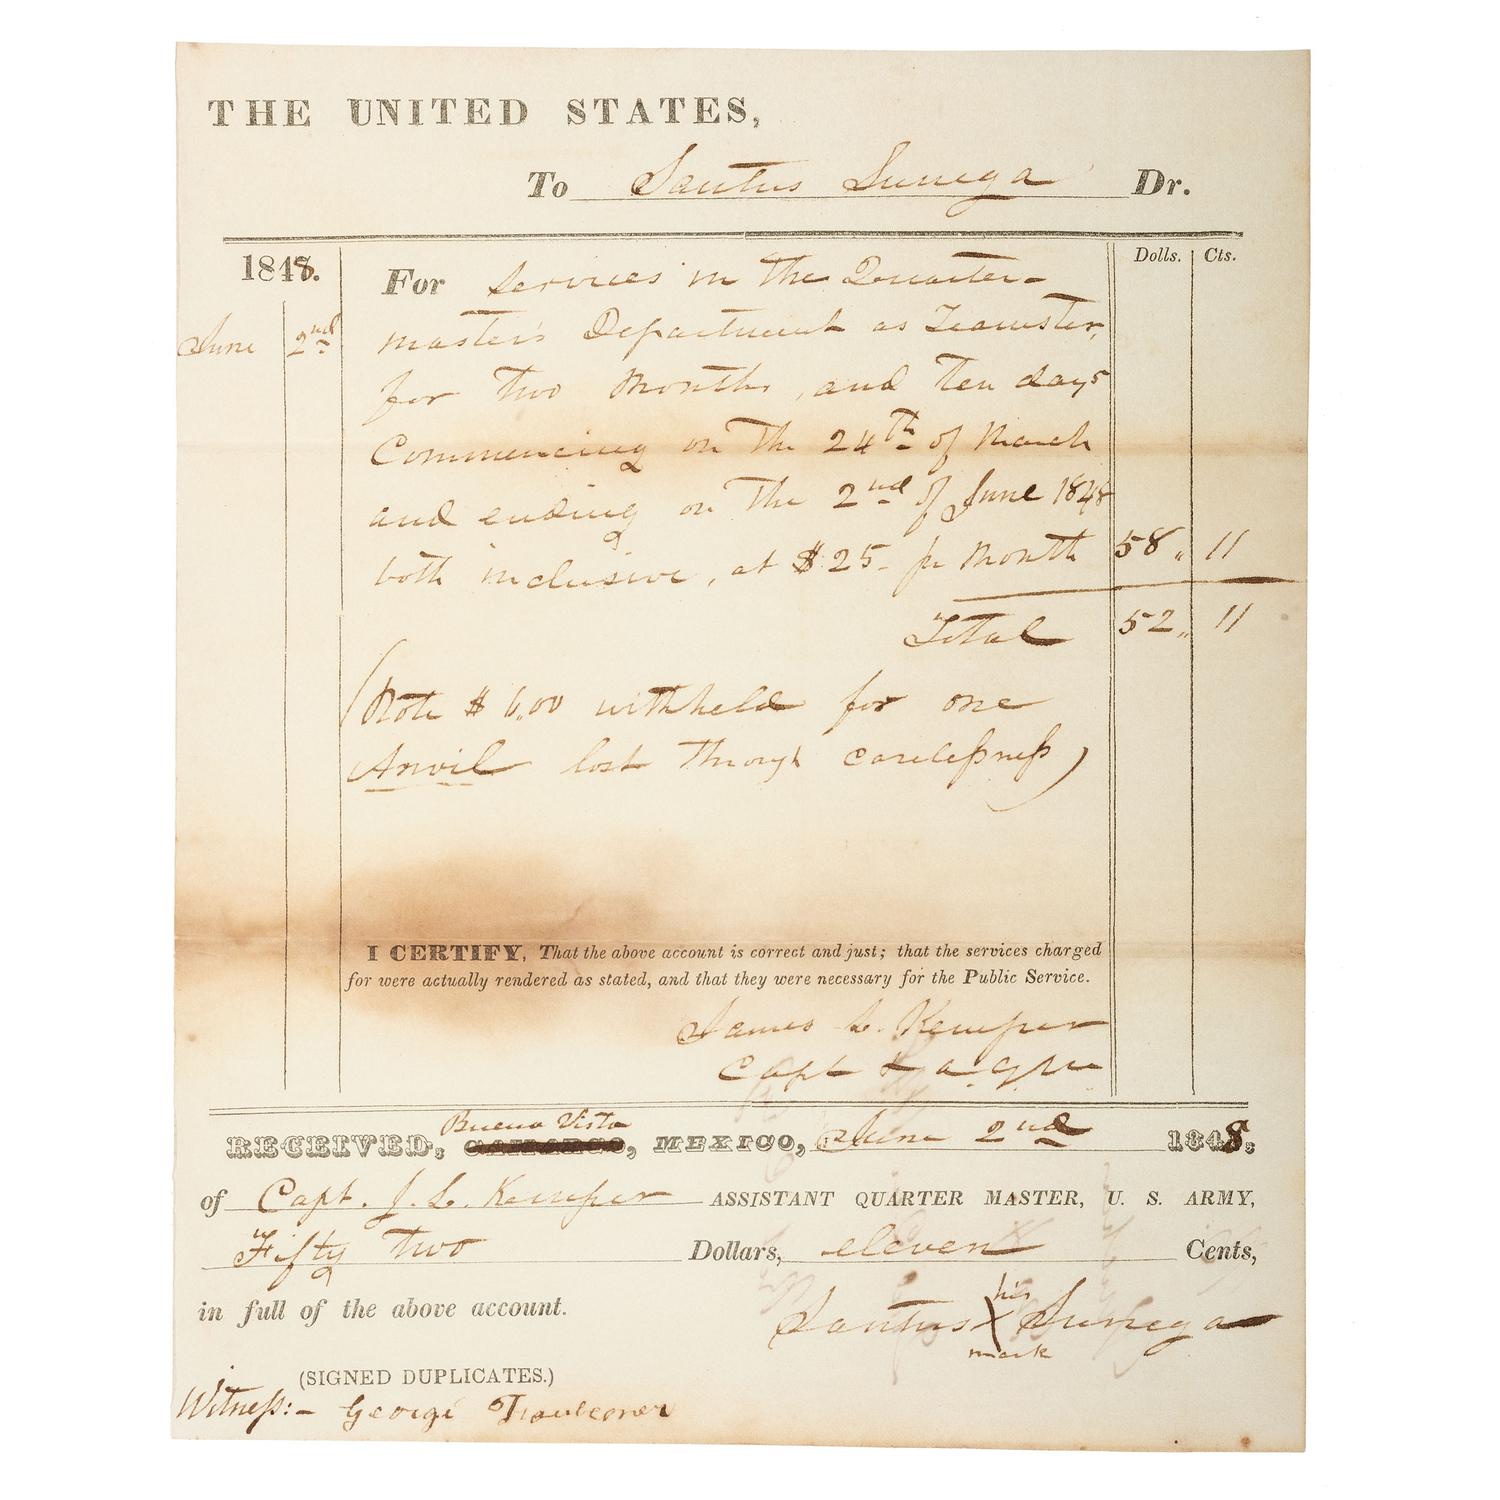 THE UNITED STATES,
To Santus Sunega Dr.
Dolls. Cts.
1848. For Services in the Quarter-
June 2nd master's Department as Teamster,
for two Months, and ten days
Commencing on the 24th of March
and ending on the 2nd of June 1848
both inclusive, at $25- pr Month 58 „ 11
Total 52 „ 11
(Note $6.00 withheld for one
Anvil lost through carelessness)
I CERTIFY, That the above account is correct and just; that the services charged
for were actually rendered as stated, and that they were necessary for the Public Service.
James L. Kemper
Capt & a.q.m
Buena Vista
RECEIVED, CAMARGO, MEXICO, June 2nd 1848,
of Capt. J. L. Kemper ASSISTANT QUARTER MASTER, U. S. ARMY,
Fifty two Dollars, eleven Cents,
in full of the above account.
his
Santus X Sunega
mark
(SIGNED DUPLICATES.)
Witness:- George